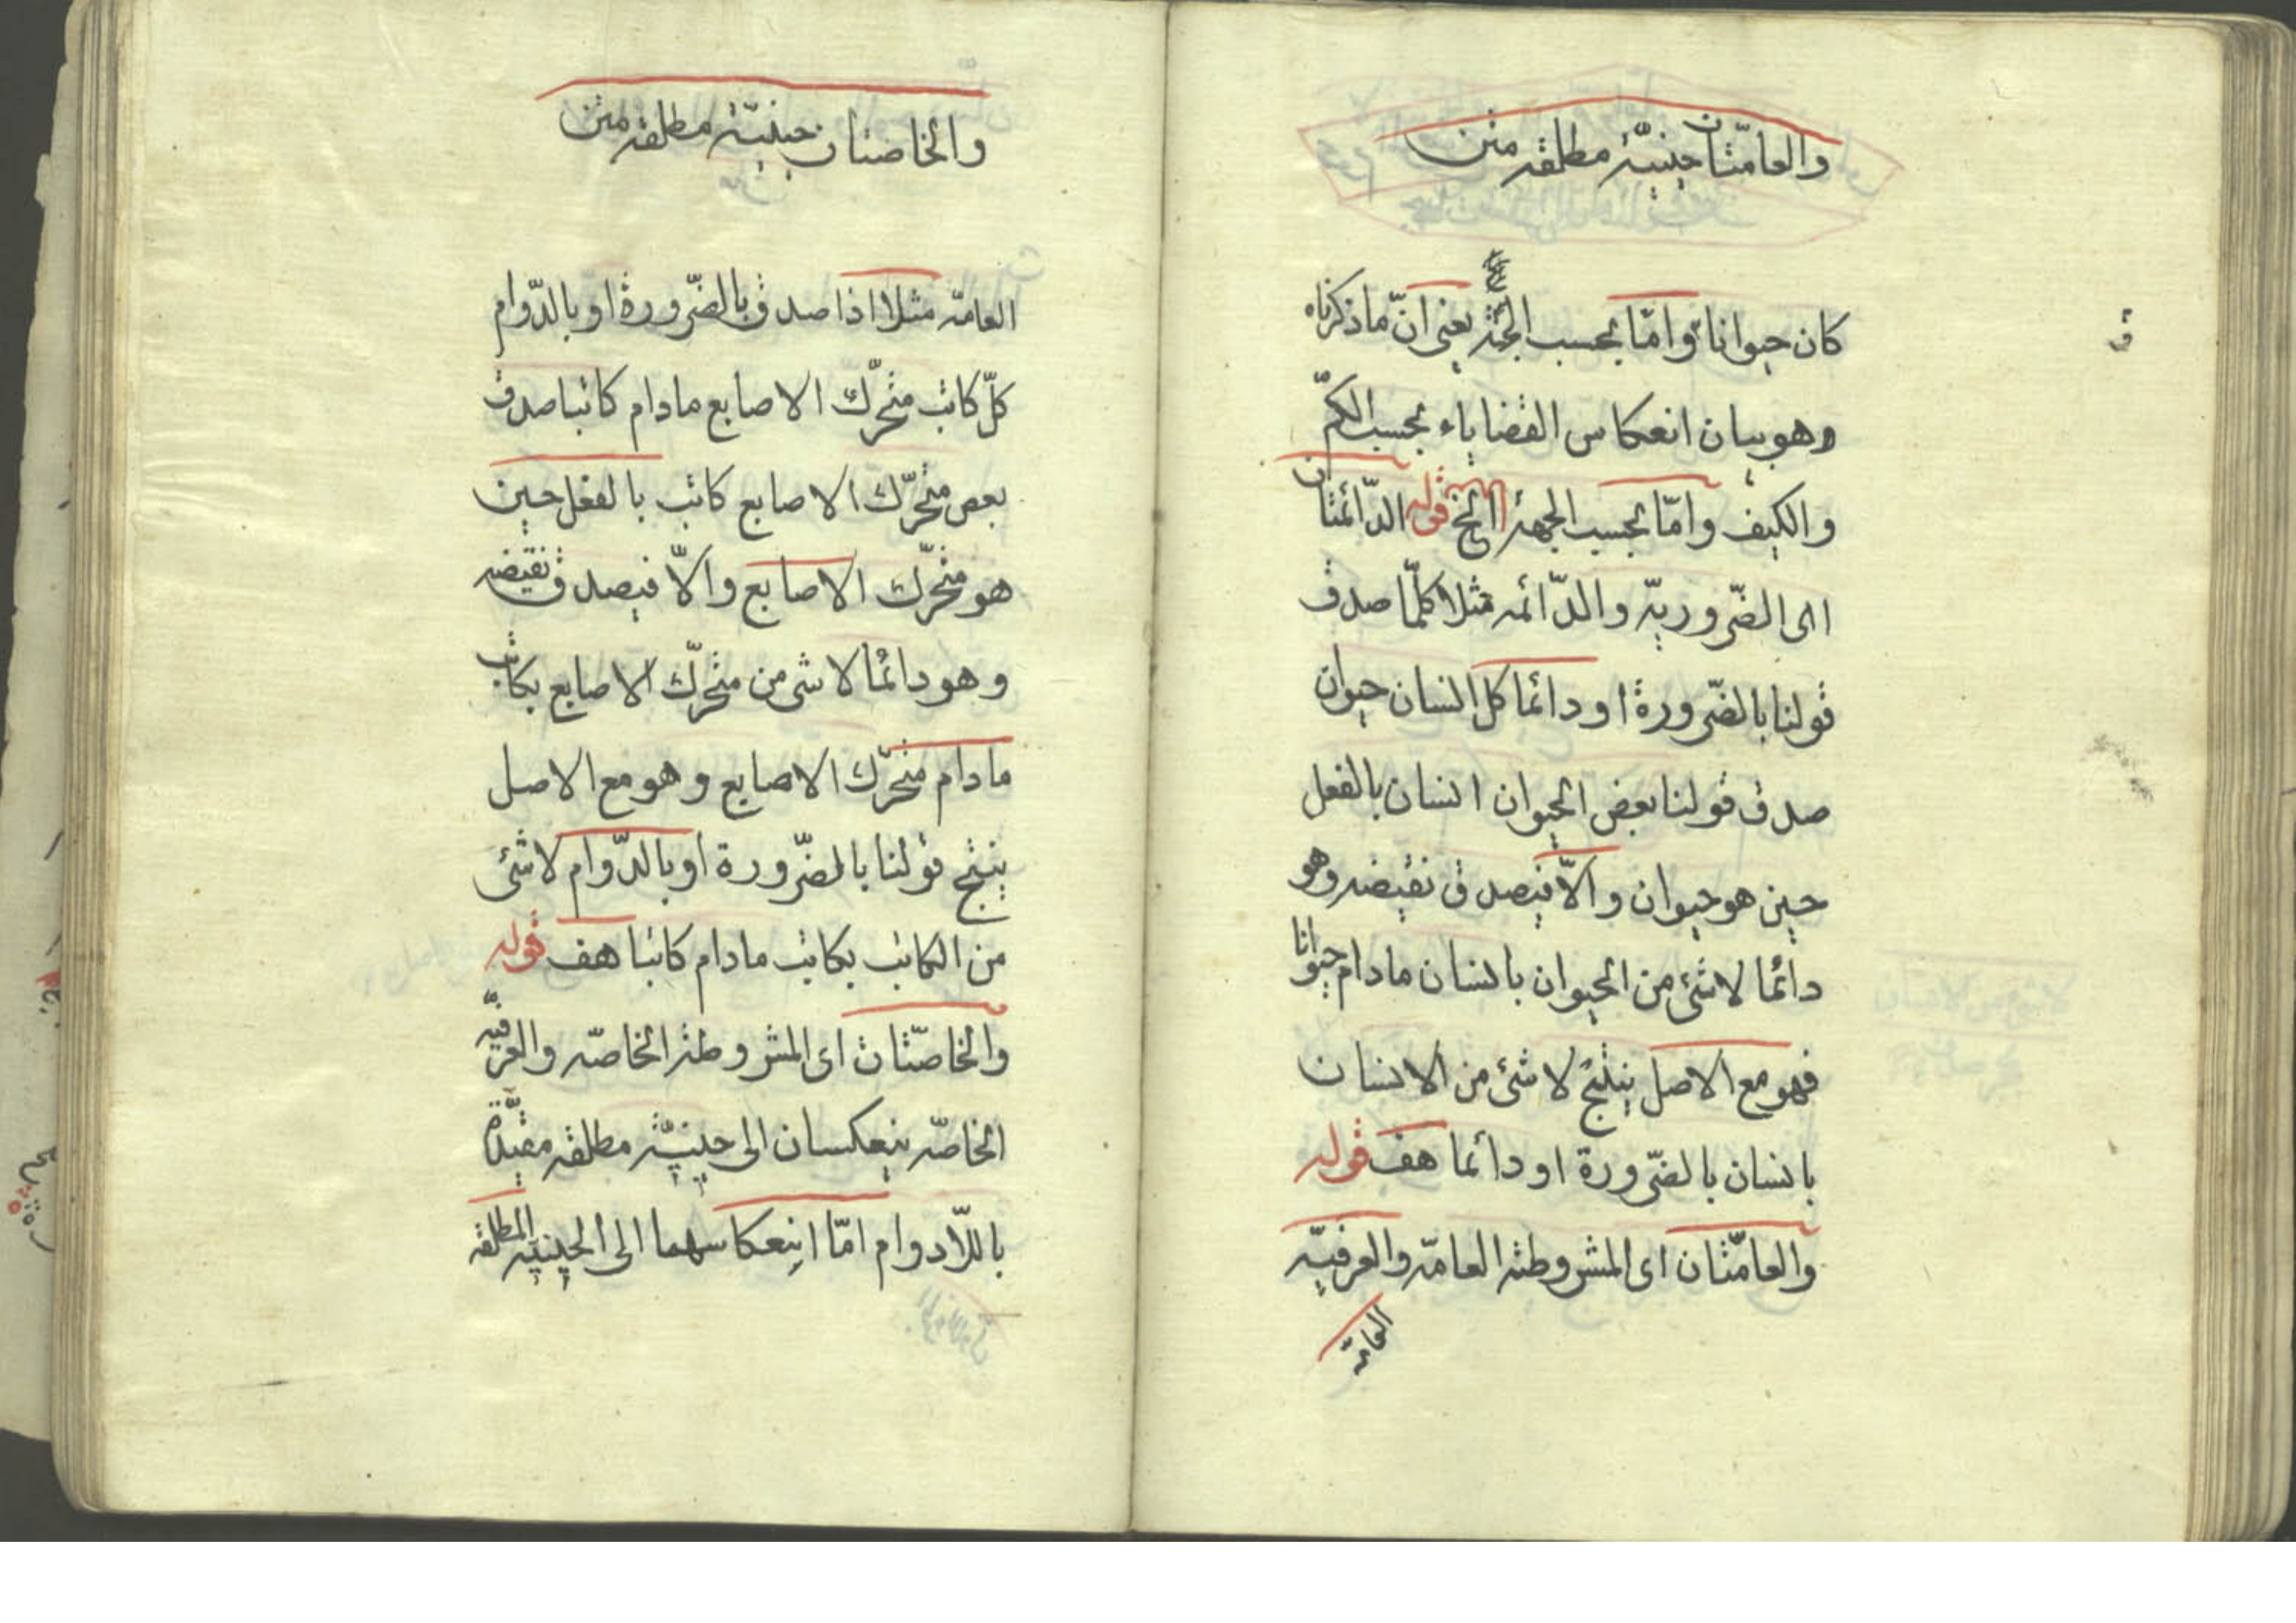 والعامّتان حينيّة مطلقه متن
كان حيوانا وامّا بحسب الجهة يعنى انّ ما ذكرناه
وهو بيان انعكاس القضاياء بحسب الكمّ
والكيف وامّا بحسب الجهة الخ قوله الدّائمتان
اى الضّروريّه والدّائمه مثلا كلّما صدق
قولنا بالضّرورة او دائما كل انسان حيوان
صدق قولنا بعض الحيوان انسان بالفعل
حين هو حيوان والّا فيصدق نقيضه وهو
دائما لا شئ من الحيوان بانسان ما دام حيوانا
فهو مع الاصل ينتج لا شئ من الانسان
بانسان بالضّرورة او دائما هف قوله
والعامّتان اى المشروطة العامّه والعرفيّه
العامّه
والخاصتان حينيّة مطلقه متن
العامّه مثلا اذا صدق بالضّرورة او بالدّوام
كلّ كاتب متحرّك الاصابع ما دام كاتبا صدق
بعض متحرّك الاصابع كاتب بالفعل حين
هو متحرّك الاصابع والّا فيصدق نقيضه
وهو دائما لا شى من متحرّك الاصابع بكاتب
ما دام متحرّك الاصابع وهو مع الاصل
ينتج قولنا بالضّرورة او بالدّوام لا شئ
من الكاتب بكاتب ما دام كاتبا هف قوله
والخاصّتان اى المشروطة الخاصّه والعرفيّه
الخاصّه ينعكسان الى حينيّة مطلقه مقيّدة
باللّادوام امّا انعكاسهما الى الحينيّه المطلقه